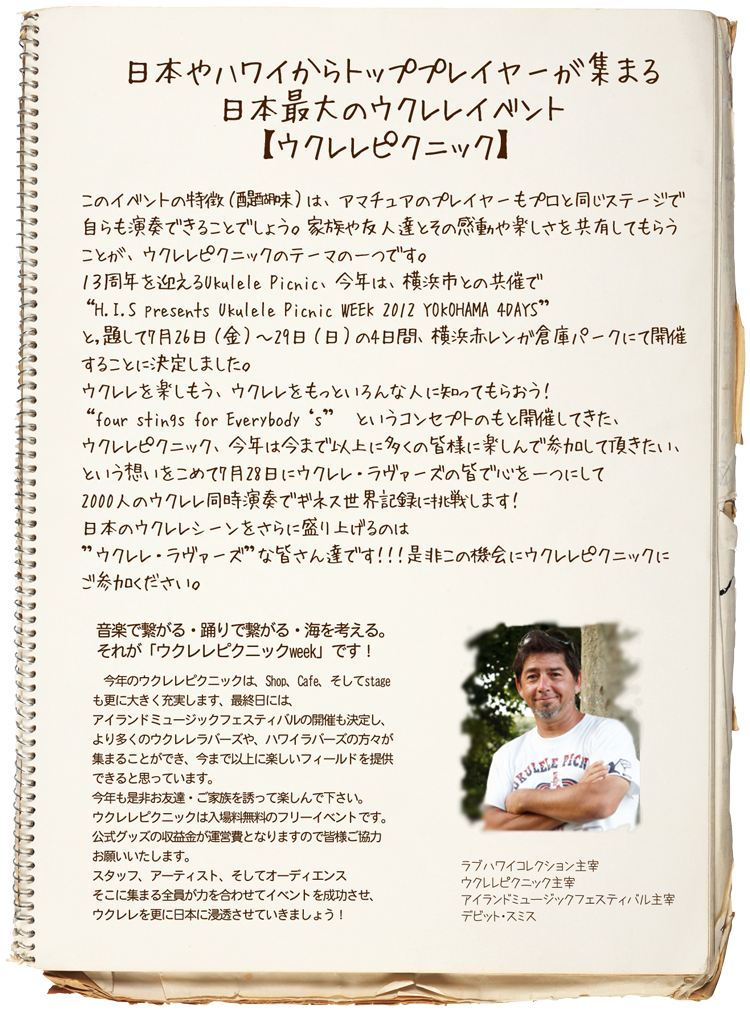 日本やハワイからトッププレイヤーが集まる
日本最大のウクレレイベント
【ウクレレピクニック】
このイベントの特徴（醍醐味）は、アマチュアのプレイヤーもプロと同じステージで
自らも演奏できることでしょう。家族や友人達とその感動や楽しさを共有してもらう
ことが、ウクレレピクニックのテーマの一つです。
13周年を迎えるUkulele Picnic、今年は、横浜市との共催で
“H.I.S presents Ukulele Picnic WEEK 2012 YOKOHAMA 4DAYS”
と，題して7月26日（金）～29日（日）の4日間、横浜赤レンが倉庫パークにて開催
することに決定しました。
ウクレレを楽しもう、ウクレレをもっといろんな人に知ってもらおう！
“four stings for Everybody‘s”　というコンセプトのもと開催してきた、
ウクレレピクニック、今年は今まで以上に多くの皆様に楽しんで参加して頂きたい、
という想いをこめて7月28日にウクレレ・ラヴァーズの皆で心を一つにして
2000人のウクレレ同時演奏でギネス世界記録に挑戦します！
日本のウクレレシーンをさらに盛り上げるのは
”ウクレレ・ラヴァーズ”な皆さん達です！！！是非この機会にウクレレピクニックに
ご参加ください。
音楽で繋がる・踊りで繋がる・海を考える。
それが「ウクレレピクニックweek」です！
今年のウクレレピクニックは、Shop、Cafe、そしてstage
も更に大きく充実します、最終日には、
アイランドミュージックフェスティバルの開催も決定し、
より多くのウクレレラバーズや、ハワイラバーズの方々が
集まることができ、今まで以上に楽しいフィールドを提供
できると思っています。
今年も是非お友達・ご家族を誘って楽しんで下さい。
ウクレレピクニックは入場料無料のフリーイベントです。
公式グッズの収益金が運営費となりますので皆様ご協力
お願いいたします。
スタッフ、アーティスト、そしてオーディエンス
そこに集まる全員が力を合わせてイベントを成功させ、
ウクレレを更に日本に浸透させていきましょう！
UKULELE PICN
ラブハワイコレクション主宰
ウクレレピクニック主宰
アイランドミュージックフェスティバル主宰
デビット・スミス